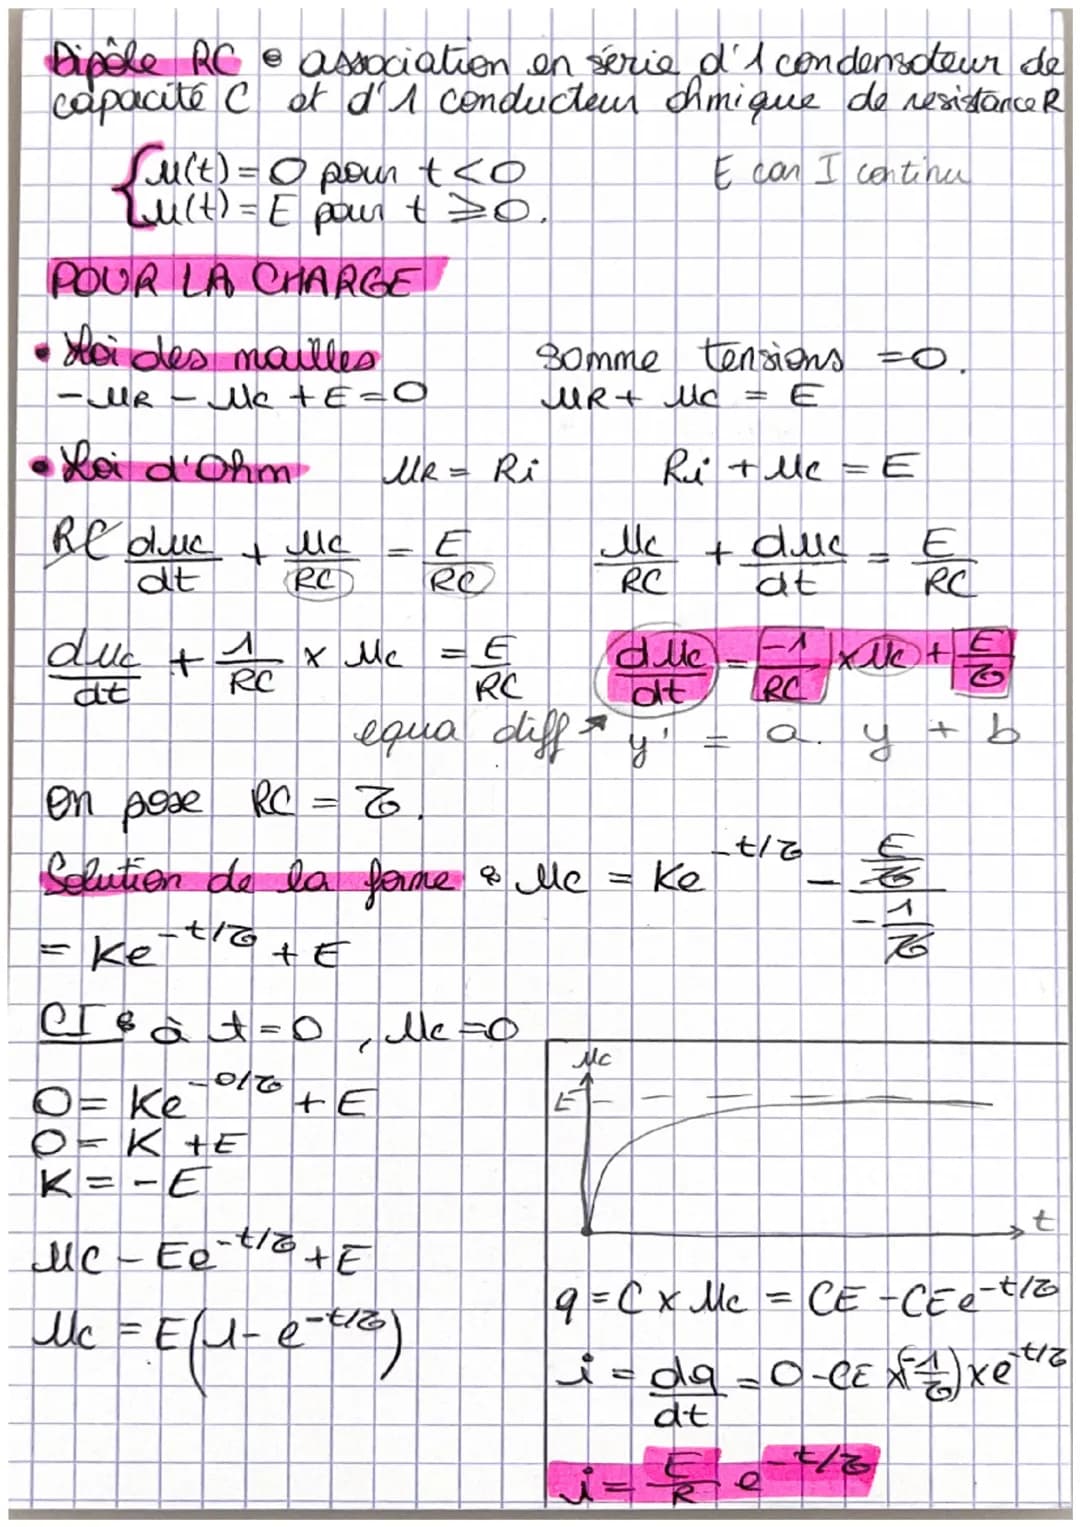 Dipôle RC : association en série d'1 condensateur de
capacité C et d'1 conducteur ohmique de resistance R
{u(t) = 0 pour t < 0 E car I continu
{u(t) = E pour t ⩾ 0.
POUR LA CHARGE
• Loi des mailles somme tensions = 0.
- uR - uc + E = 0 uR + uc = E
• Loi d'Ohm uR = Ri Ri + uc = E
RC duc/dt + uc/RC = E/RC uc/RC + duc/dt = E/RC
duc/dt + 1/RC × uc = E/RC duc/dt = -1/RC × uc + E/τ
equa diff ↗ y' = a. y + b
On pose RC = τ.
Solution de la forme : uc = Ke^-t/τ - (E/τ)/(-1/τ)
= Ke^-t/τ + E
CI : à t = 0, uc = 0
0 = Ke^-0/τ + E
0 = K + E
K = - E
uc - Ee^-t/τ + E
uc = E(1 - e^-t/τ)
uc
E
t
q = C × uc = CE - CEe^-t/τ
i = dq/dt = 0 - CE × (-1/τ) × e^-t/τ
i = E/R e^-t/τ